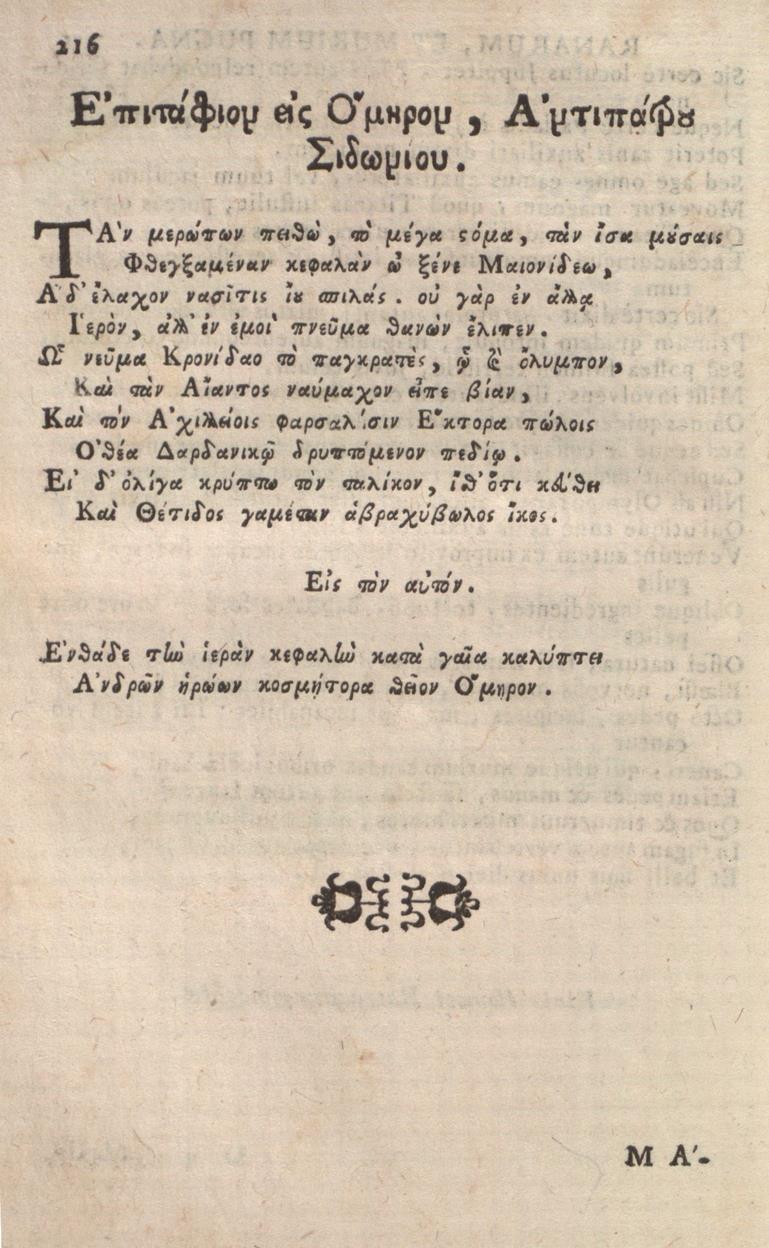 216
Ε'πιτάφιον εἰς Ο῞μηρον, Α'ντιπάτρου
Σιδωνίου.
ΤΑ`ν μερώπων πειθὼ, τὸ μέγα ϛόμα, τὰν ἴσα μούσαις
Φθεγξαμέναν κεφαλὰν ὦ ξένε Μαιονίδεω,
Α῞δ' ἔλαχον νασῖτις ἴου σπιλάς. οὐ γὰρ ἐν ἄλλᾳ
Ι῾ερὸν, ἀλλ' ἐν ἐμοὶ πνεῦμα θανὼν ἔλιπεν.
Ω῟ͅ νεῦμα Κρονίδαο τὸ παγκρατὲς, ᾧ καὶ ὄλυμπον,
Καὶ τὰν Αἴαντος ναύμαχον εἶπε βίαν,
Καὶ τὸν Α'χιλλείοις φαρσαλίσιν Ε῞κτορα πώλοις
Ο'ϑέα Δαρδανικῷ δρυπτόμενον πεδίῳ.
Ει' δ' ὀλίγα κρύπτω τὸν ταλίκον, ἴθ' ὅτι κεύθει
Καὶ Θέτιδος γαμέταν ἁβραχύβωλος ἴκος.
Εἰς τὸν αὐτόν.
Ε'νθάδε τὴν ἱερὰν κεφαλὴν κατὰ γαῖα καλύπτει
Α'νδρῶν ἡρώων κοσμήτορα θεῖον Ο῞μηρον.
Μ Α'-